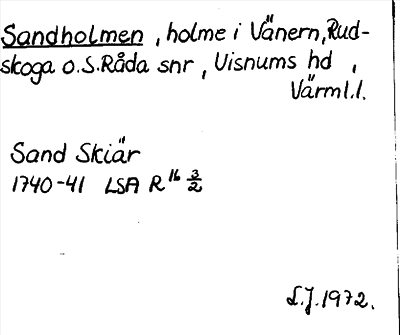 Sandholmen, holme i Vänern, Rud-
skoga o. S. Råda snr, Visnums hd,
Värml.l.
Sand Skiär
1740-41 LSA R 16 3/2
L.J. 1972.